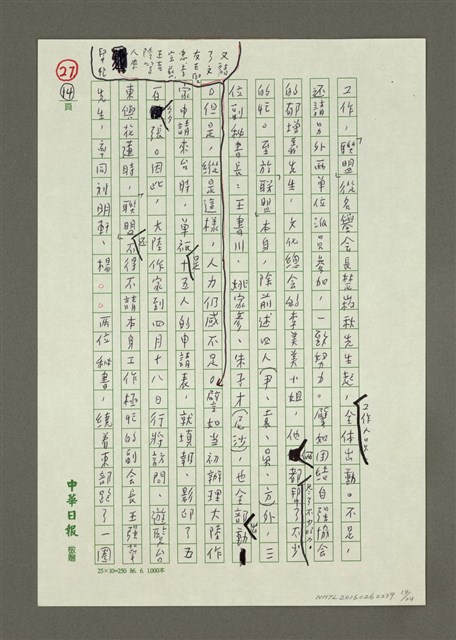 27
14頁
工作,「聯盟」從名譽會長楚崧秋先生起,全体工作人員出動。不足,
還請另外兩單位派員參加,一致努力。譬如團結自強協會
的郁增義先生,文化總會的李美美小姐,他們都幫了不少
的忙。至於「聯盟」本身,除前述四人(尹、袁、吳、方)外,三
位副秘書長:王書川、姚家彥、朱子才(尼沙),也全部出動
。但是,縱是這樣,人力仍感不足。譬如當初辦理大陸作
家申請來台時,單是十五人的申請表,就填報、影印了五
百多張。因此,大陸作家到四月十八日行將訪問、遊覽台
東個花蓮時,「聯盟」還不得不請本身工作極忙的副会長王強華
先生,率同刘明軒、楊○○兩位秘書,繞着東部跑了一圈
又請
了文
友
人
中華日報
稿箋
25×10=250 86.6.1,000本
NMTL20160260239 14/24